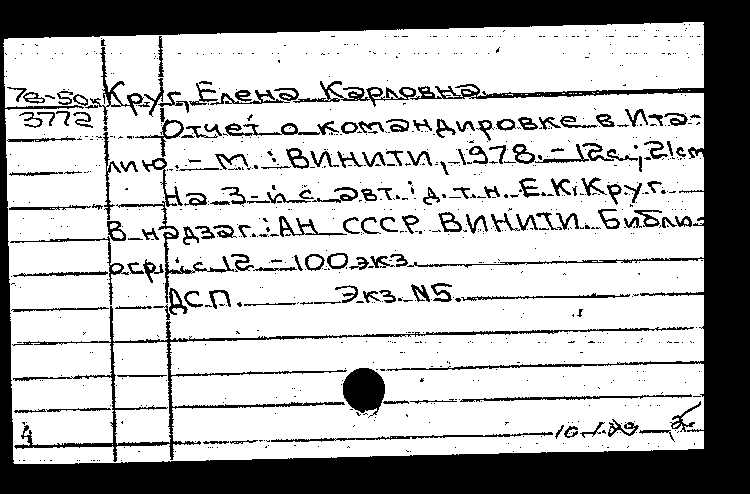 78-50к Круг, Елена Карловна.
3772 Отчет о командировке в Ита-
лию. - М. : ВИНИТИ, 1978. - 12с.; 21см
На 3-й с. авт.: д.т.н. Е.К.Круг.
В надзаг.: АН СССР ВИНИТИ. Библи-
огр.: с. 12 - 100 экз.
ДСП. Экз. N5.